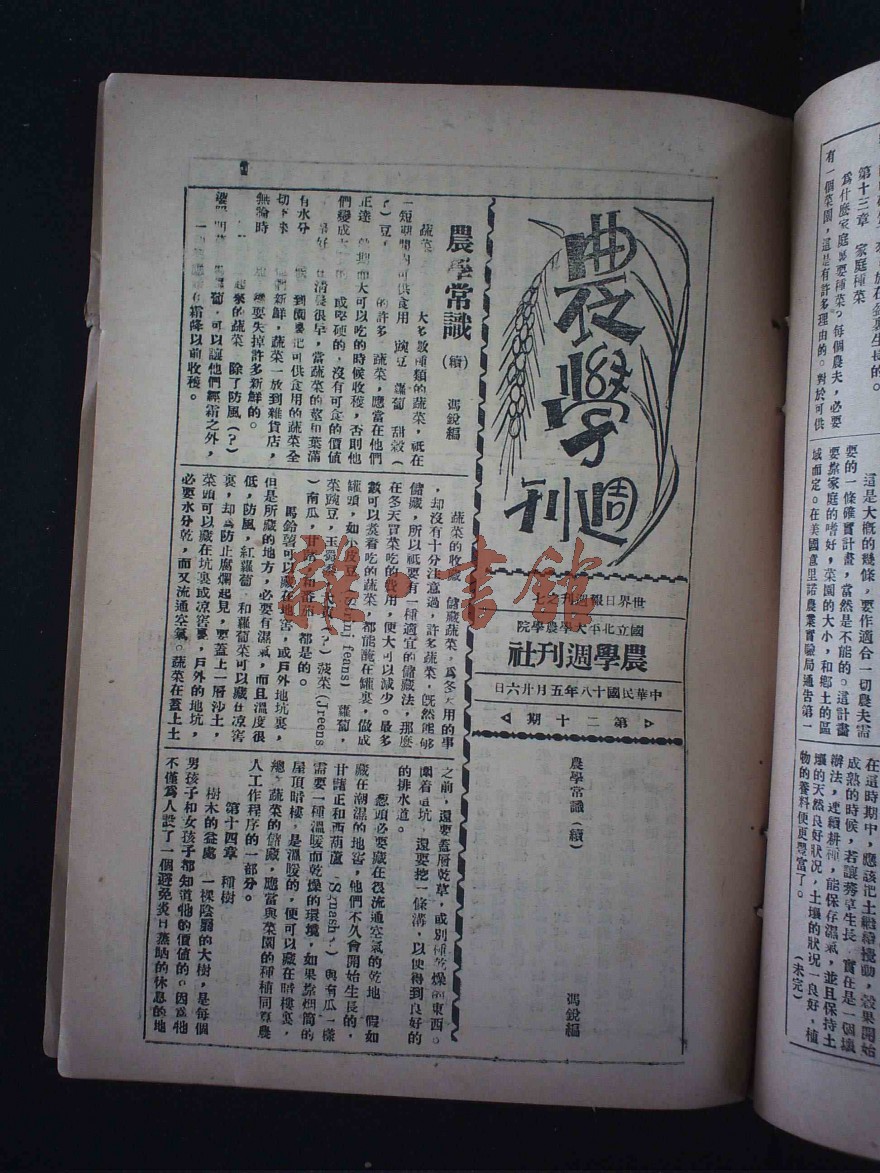 農學
週刊
世界日報週刊之七
國立北平大學農學院
農學週刊社
中華民國十八年五月廿六日
第二十期
農學常識（續）
馮銳編
農學常識（續）　馮銳編
蔬菜　大多數種類的蔬菜，祇在
一短期間內可供食用　豌豆　蘿蔔　甜穀（
？）豆，　的許多　蔬菜，應當在他們
正達　而大可以吃的時候收穫，否則他
們變成　或堅硬的，沒有可食的價值
最好　在清晨很早，當蔬菜的莖和葉滿
有水分　到園裏把可供食用的蔬菜全
切下來　他們新鮮，蔬菜一放到雜貨店，
無論時　要失掉許多新鮮的。
起來的蔬菜　除了防風（？）
蔔，可以讓他們經霜之外，
在霜降以前收穫。
蔬菜的收藏　儲藏蔬菜，為冬天用的事
，却沒有十分注意過，許多蔬菜，既然能够
儲藏，所以祇要有一種適宜的儲藏法，那麼
在冬天買菜吃的費用，便大可以減少。最多
數可以煑着吃的蔬菜，都能醃在罐裏，做成
罐頭，如　蘿蔔，
菜豌豆，玉蜀黍　菠菜
）南瓜，甘藷，和番茄，都是的。
馬鈴薯可以藏在地窖，或戶外地坑裏，
但是所藏的地方，必要有濕氣，而且溫度很
低，防風，紅蘿蔔，和蘿蔔菜可以藏在凉窖
裏，却為防止腐爛起見，要蓋上一層沙土，
菜頭可以藏在坑裏或凉窖裏，戶外的地坑，
必要水分乾，而又流通空氣。蔬菜在蓋上土
之前，還要蓋層乾草，或別種乾燥的東西。
圍着這坑　還要挖一條溝，以使得到良好的
的排水道。
葱頭必要藏在很流通空氣的乾地　假如
藏在潮濕的地窖，他們不久會開始生長的，
甘藷正和西葫蘆　與南瓜一樣
需要一種溫暖而乾燥的環境，如果靠烟筒的
屋頂暗樓，是溫暖的，便可以藏在暗樓裏，
總之蔬菜的儲藏，應當與菜園的種植同算農
人工作程序的一部分。
第十四章　種樹
樹木的益處　一棵陰翳的大樹，是每個
男孩子和女孩子都知道牠的價值的。因為牠
不僅為人設了一個避免炎日蒸晒的休息的地
放在盆裏生長的。
第十三章　家庭種菜
為什麼家庭裏要種菜？每個農夫，必要
有一個菜園，這是有許多理由的。對於可供
這是大概的懸條，要作適合一切農夫需
要的一條確實計畫，當然是不能的。這計畫
要靠家庭的嗜好，菜園的大小，和鄉土的區
域而定。在美國意里諾農業實驗局通告第一
在這時期中，應該把土繼續擾動，穀果開始
成熟的時候，若讓莠草生長　實在是一個壞
辦法，連續耕種，能保存濕氣，並且保持土
壤的天然良好狀況，土壤的狀況一良好，植
物的養料便更豐富了。（未完）
雜·書館